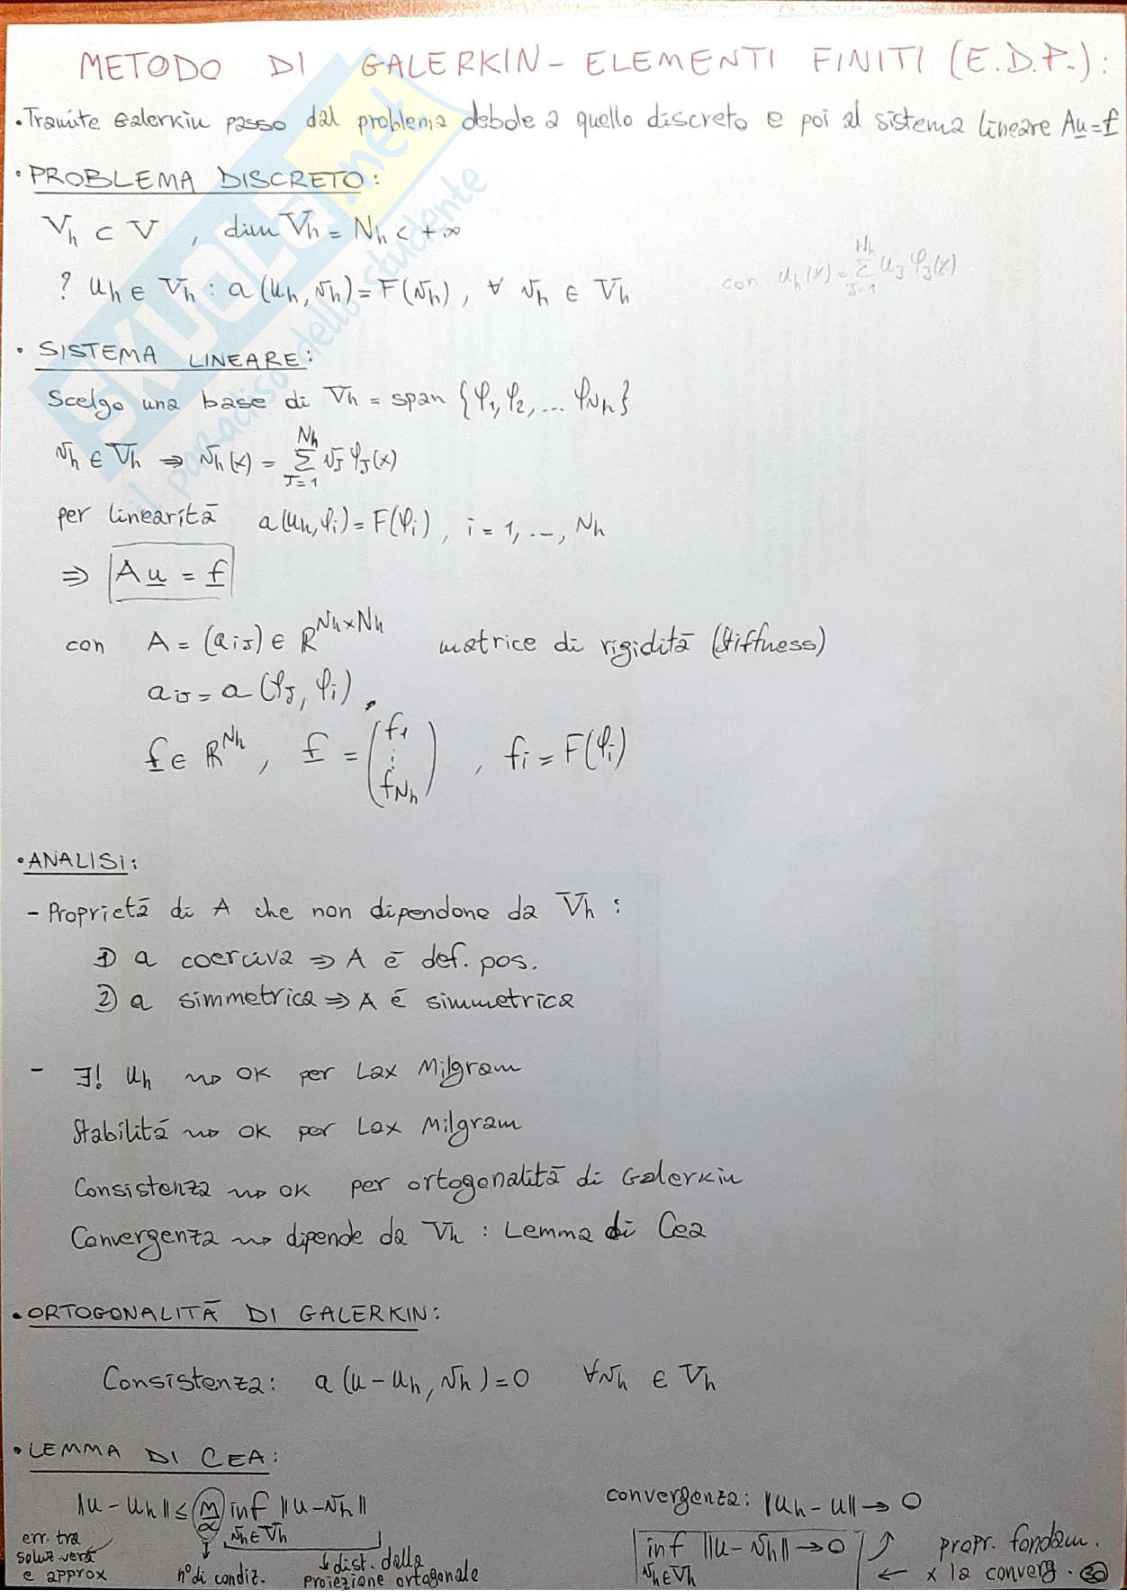 METODO DI GALERKIN - ELEMENTI FINITI (E.D.P.):
• Tramite Galerkin passo dal problema debole a quello discreto e poi al sistema lineare A<u>u</u>=<u>f</u>
• PROBLEMA DISCRETO:
V_h ⊂ V , dim V_h = N_h < +∞
? u_h ∈ V_h : a(u_h, v_h) = F(v_h), ∀ v_h ∈ V_h con u_h(x) = Σ_{J=1}^{N_h} u_J φ_J(x)
• SISTEMA LINEARE:
Scelgo una base di V_h = span {φ_1, φ_2, ... φ_{N_h}}
v_h ∈ V_h ⇒ v_h(x) = Σ_{J=1}^{N_h} v_J φ_J(x)
per linearità a(u_h, φ_i) = F(φ_i), i = 1, ..., N_h
⇒ A<u>u</u> = <u>f</u>
con A = (a_{iJ}) ∈ R^{N_h×N_h} matrice di rigidità (Stiffness)
a_{iJ} = a(φ_J, φ_i),
<u>f</u> ∈ R^{N_h}, <u>f</u> = (f_1 ⋮ f_{N_h}), f_i = F(φ_i)
• ANALISI:
- Proprietà di A che non dipendone da V_h :
1) a coerciva ⇒ A è def. pos.
2) a simmetrica ⇒ A è simmetrica
- ∃! u_h ⇝ OK per Lax Milgram
Stabilità ⇝ OK per Lax Milgram
Consistenza ⇝ OK per ortogonalità di Galerkin
Convergenza ⇝ dipende da V_h : Lemma di Cea
• ORTOGONALITÀ DI GALERKIN:
Consistenza: a(u - u_h, v_h) = 0 ∀ v_h ∈ V_h
• LEMMA DI CEA:
||u - u_h|| ≤ M/α inf_{v_h ∈ V_h} ||u - v_h||
err. tra
soluz. vera
e approx
n° di condiz.
dist. dalla
proiezione ortogonale
convergenza: ||u_h - u|| → 0
inf_{v_h ∈ V_h} ||u - v_h|| → 0
propr. fondam.
← x la converg.
SKUOLA.net
il paradiso dello studente